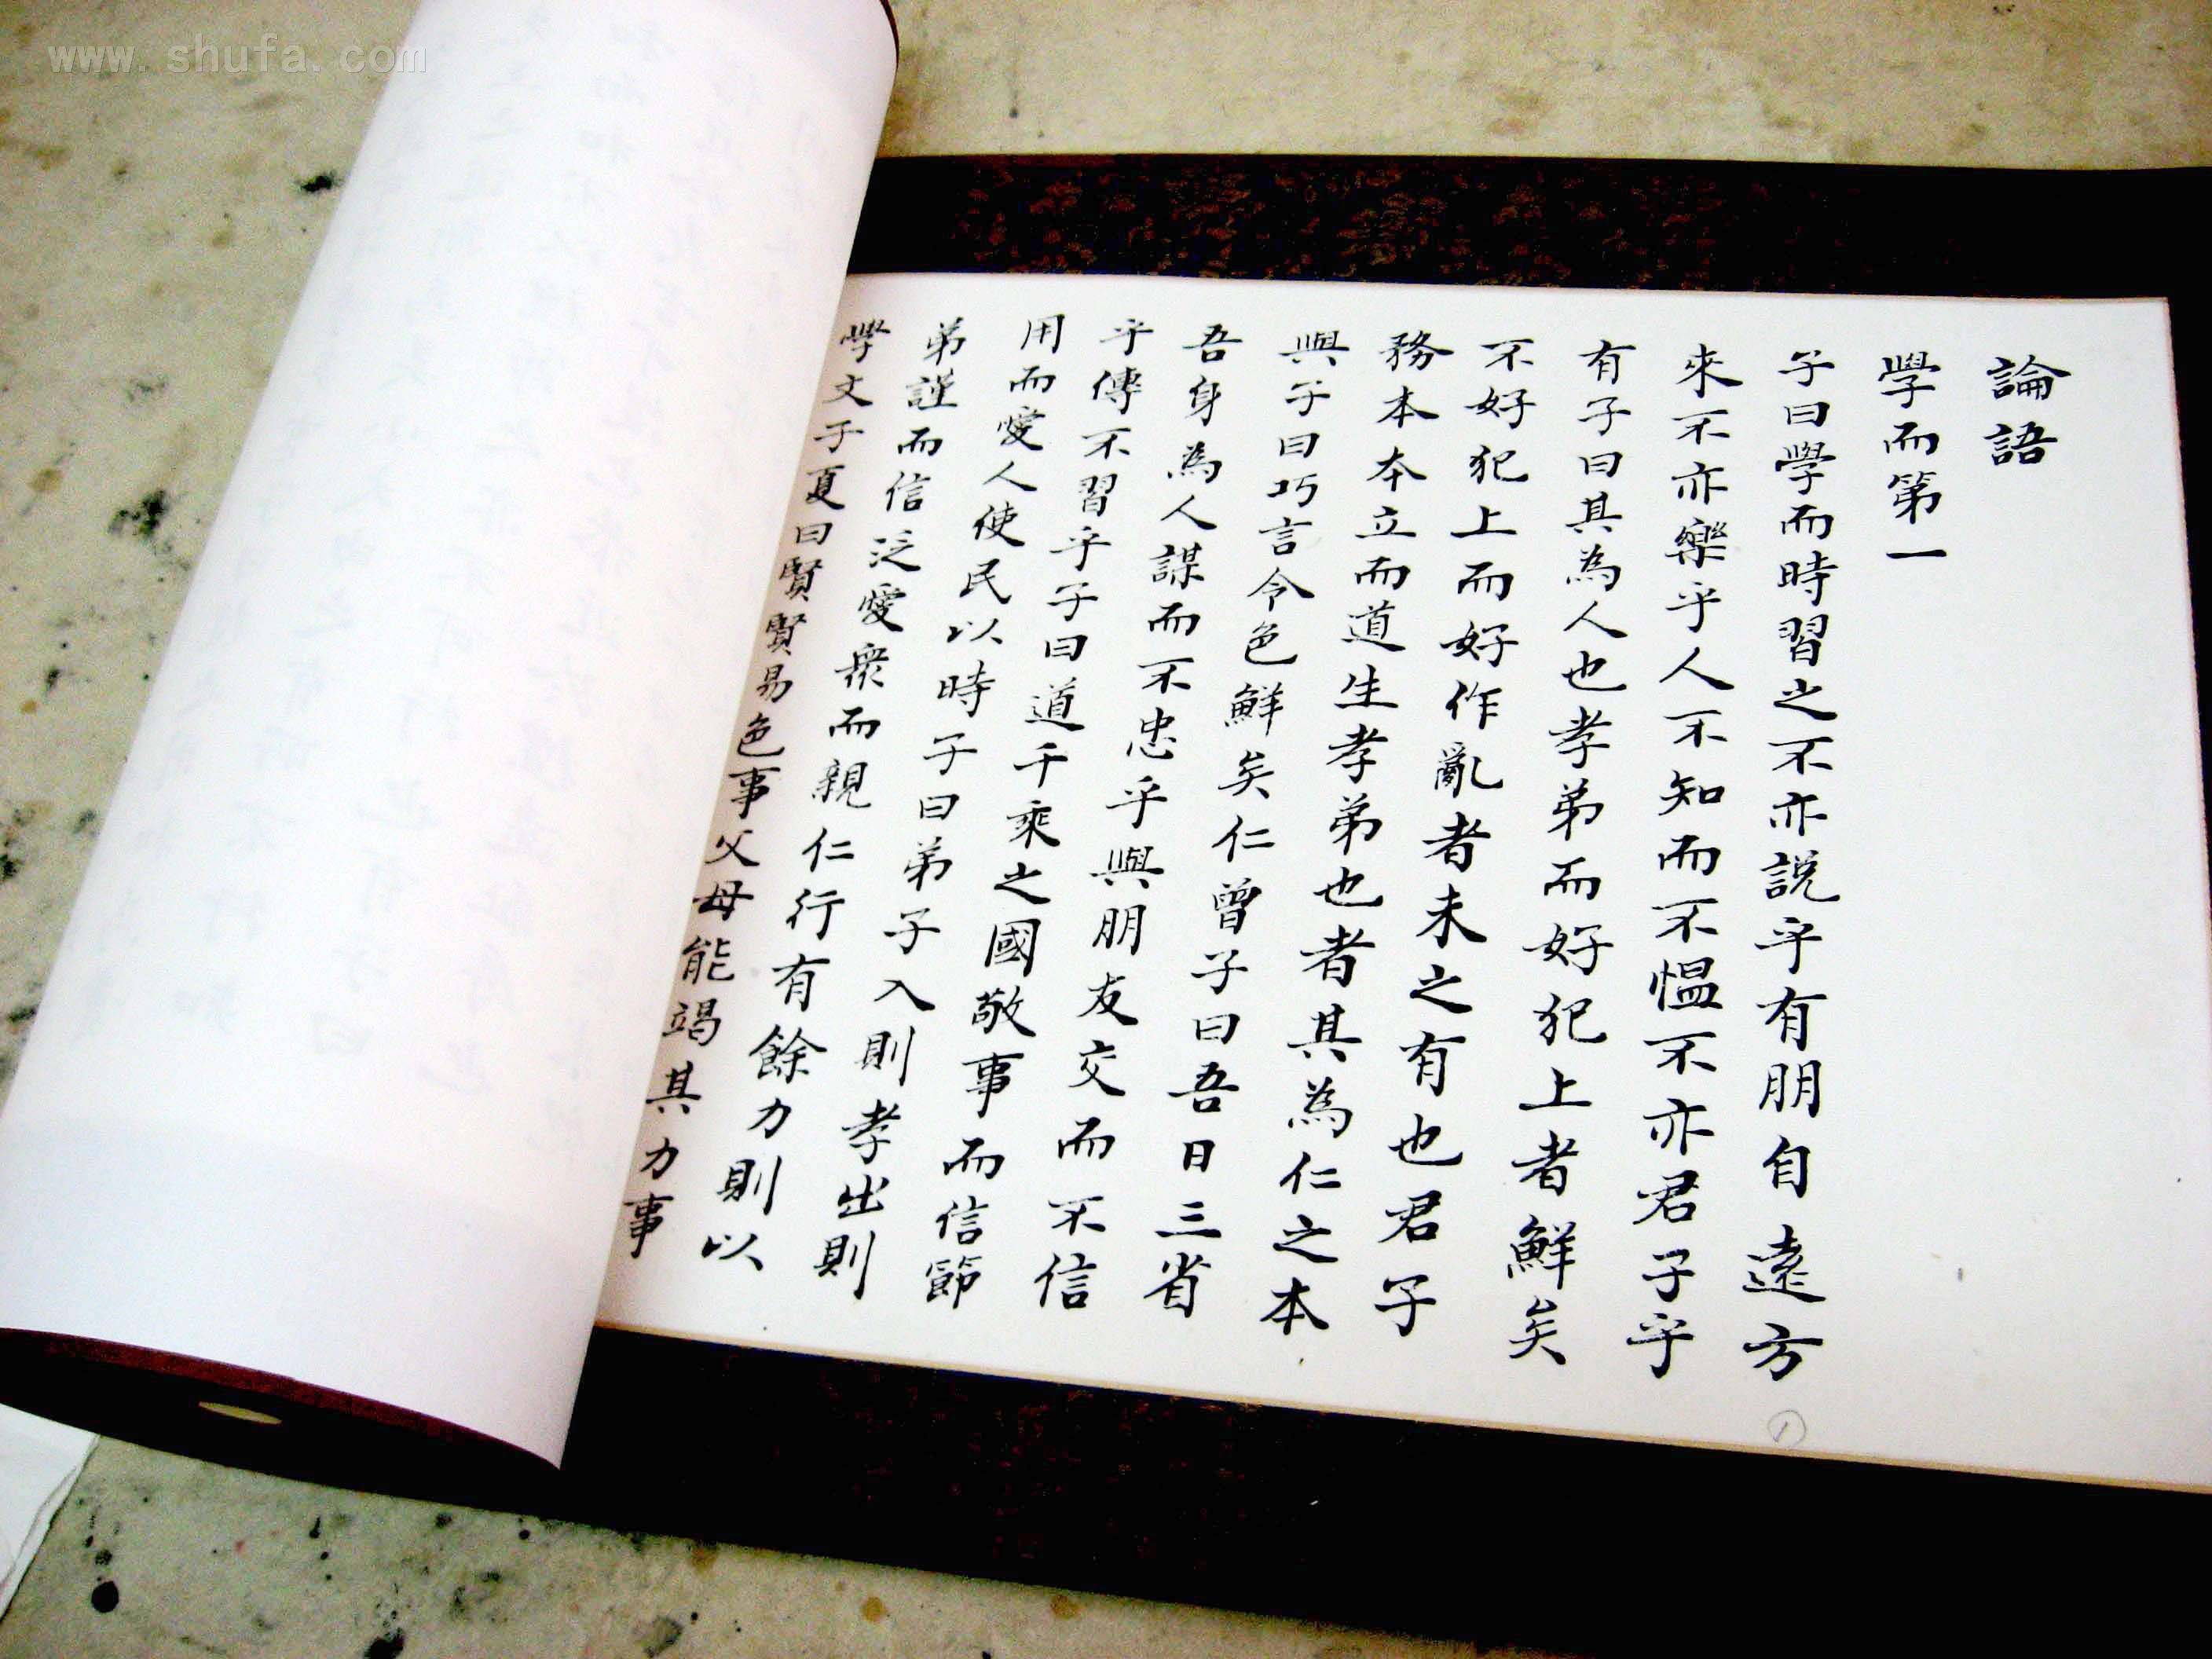 論語
學而第一
子曰學而時習之不亦説乎有朋自遠方
來不亦樂乎人不知而不愠不亦君子乎
有子曰其為人也孝弟而好犯上者鮮矣
不好犯上而好作亂者未之有也君子
務本本立而道生孝弟也者其為仁之本
與子曰巧言令色鮮矣仁曾子曰吾日三省
吾身為人謀而不忠乎與朋友交而不信
乎傳不習乎子曰道千乘之國敬事而信節
用而愛人使民以時子曰弟子入則孝出則
弟謹而信泛愛衆而親仁行有餘力則以
學文子夏曰賢賢易色事父母能竭其力事
1
www.shufa.com